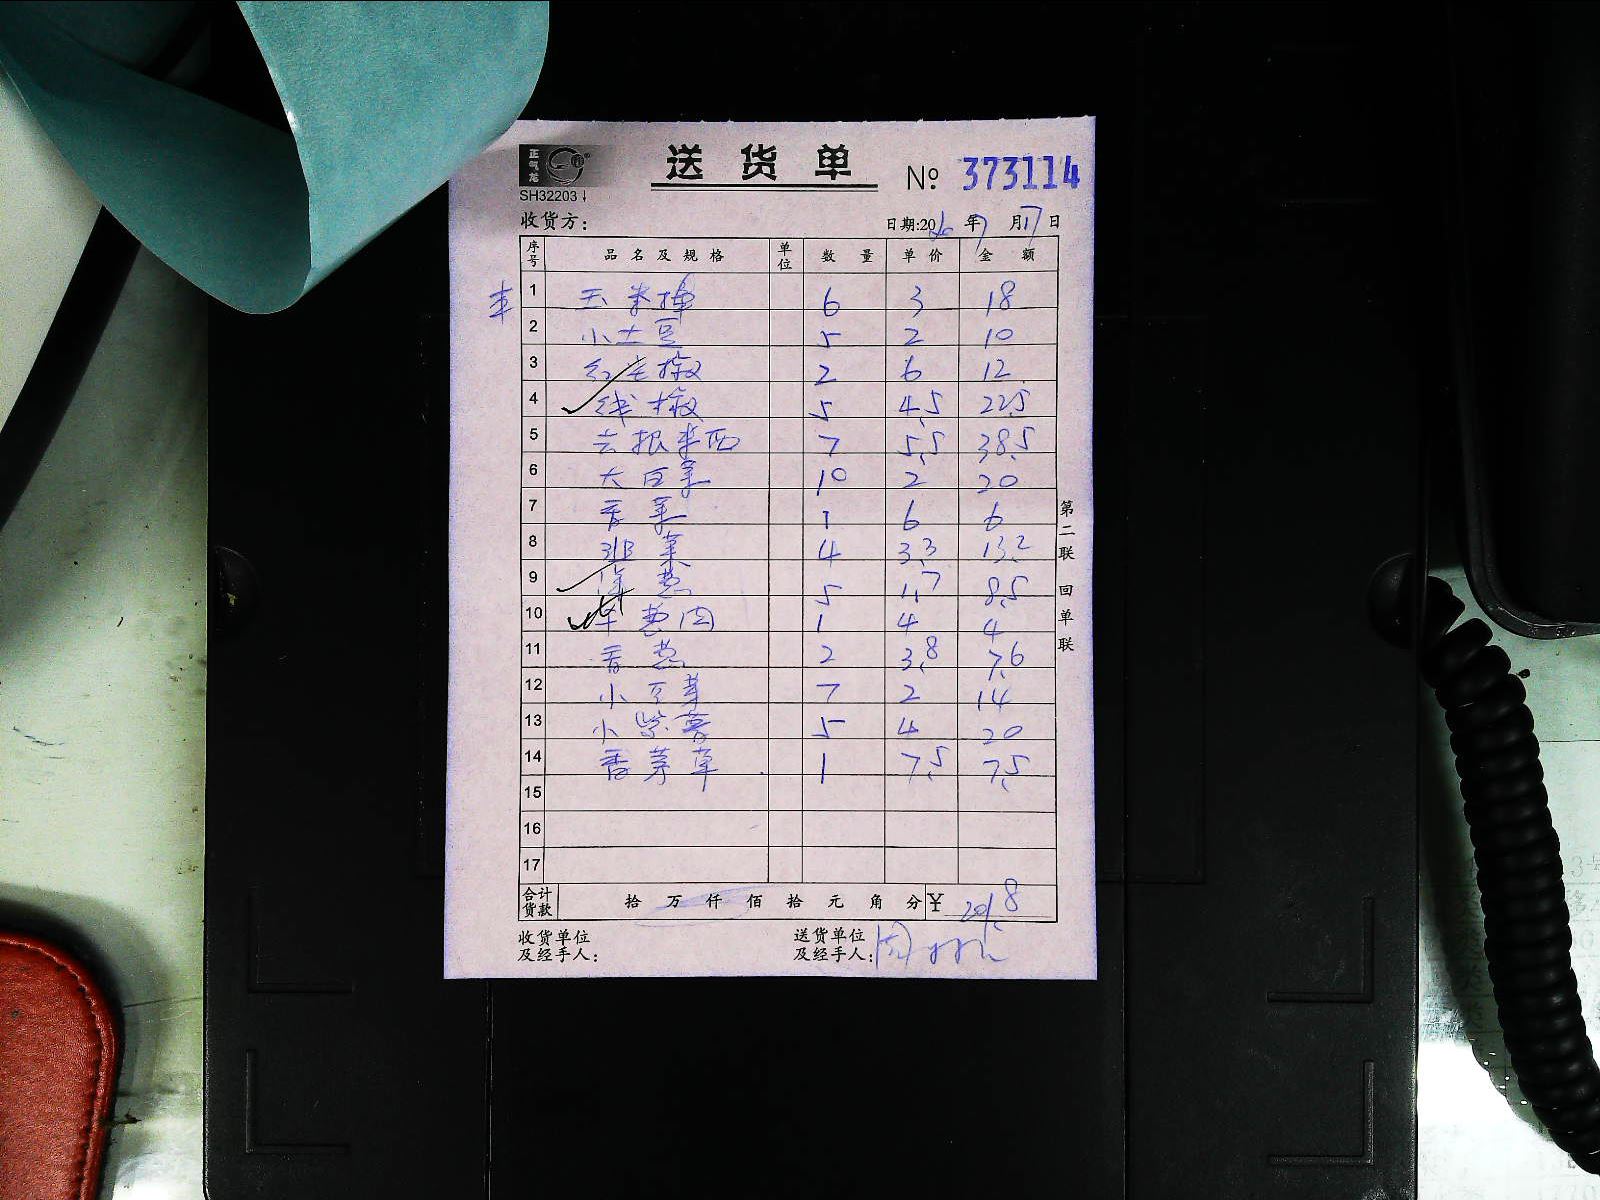 正气龙
送货单
№ 373114
SH32203
收货方:
日期:20 年7月17日
序号 品名及规格 单位 数量 单价 金额
丰
1 玉米棒 6 3 18
2 小土豆 5 2 10
3 红尖椒 2 6 12
4 线椒 5 4.5 22.5
5 去根米西 7 5.5 38.5
6 大白菜 10 2 20
7 香菜 1 6 6
8 韭菜 4 3.3 13.2
9 洋葱 5 1.7 8.5
10 葱肉 1 4 4
11 香葱 2 3.8 7.6
12 小豆芽 7 2 14
13 小紫薯 5 4 20
14 香茅草 1 7.5 7.5
15
16
17
合计货款 拾万仟佰拾元角分 ¥ 201.8
第二联 回单联
收货单位及经手人:
送货单位及经手人: